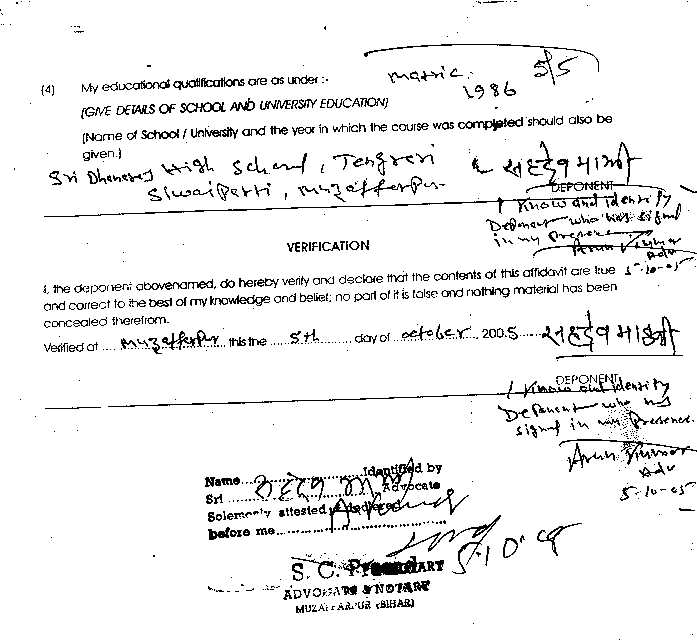 matric 5/5
1986
(4) My educational qualifications are as under :-
(GIVE DETAILS OF SCHOOL AND UNIVERSITY EDUCATION)
(Name of School / University and the year in which the course was completed should also be
given.)
Sri High School,
Siwaipatti, Muzafferpur
DEPONENT
I Know and identify
Deponent who has signed
in my presence
Arun Kumar
Adv
5-10-05
VERIFICATION
I, the deponent abovenamed, do hereby verify and declare that the contents of this affidavit are true
and correct to the best of my knowledge and belief; no part of it is false and nothing material has been
concealed therefrom.
Verified at .... Muzafferpur this the ... 5th ... day of october, 2005 सहदेव माझी
DEPONENT
I Know and identify
Deponent who has
signed in my Presence.
Arun Kumar
Adv
5-10-05
Name........ Identified by
Sri ........ Advocate
Solemenly attested declared
before me........
S. C. Prasad
ADVOCATE & NOTARY
MUZAFFARPUR (BIHAR)